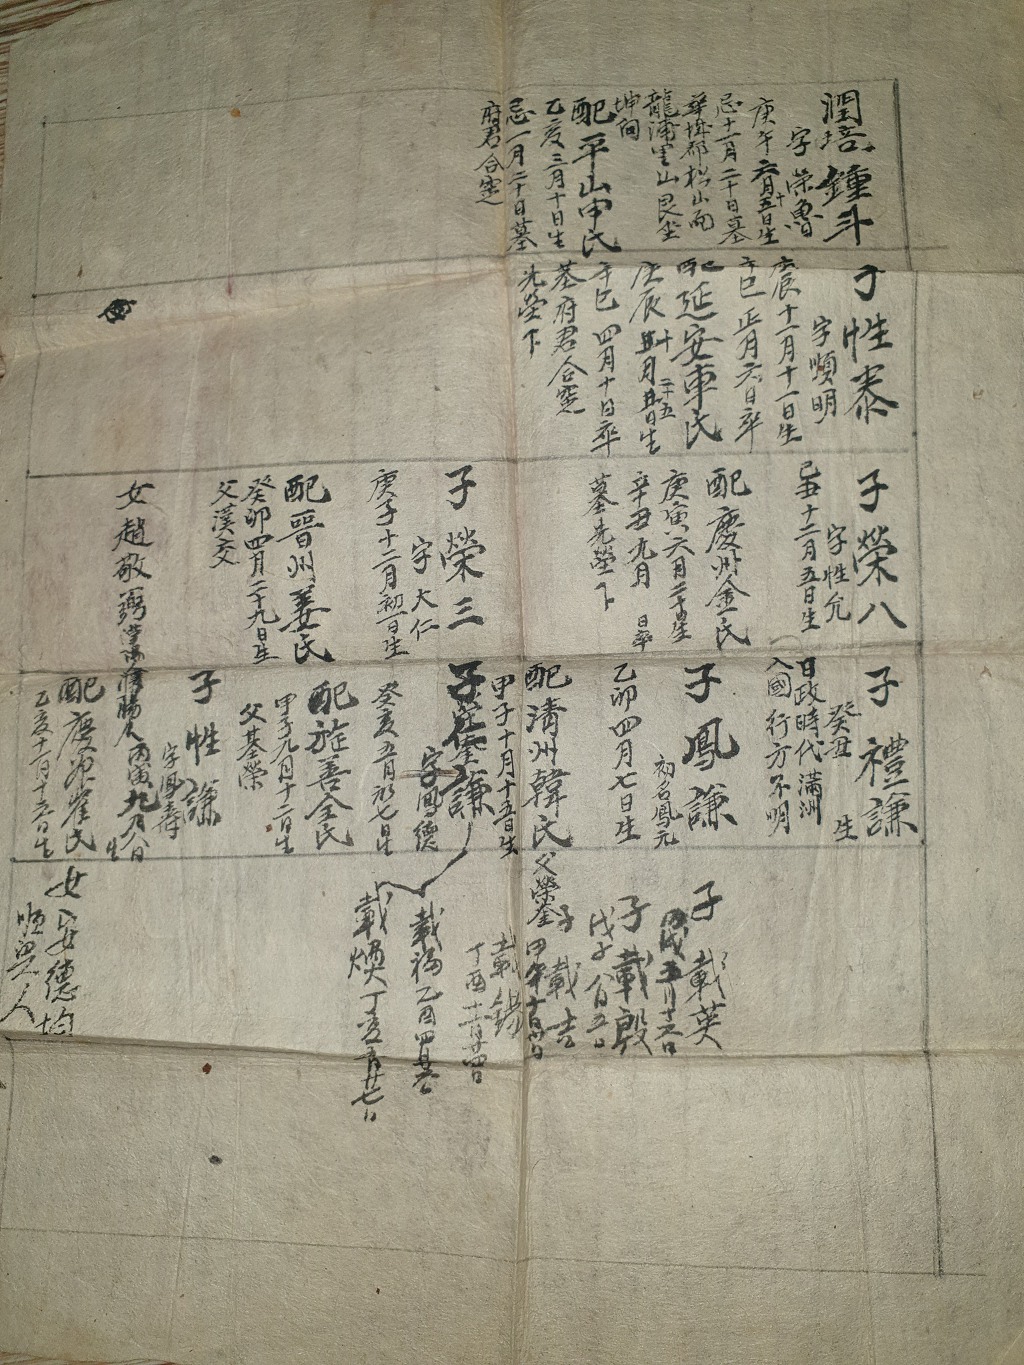 潤培
鍾斗
字榮魯
庚午六月十五日生
忌十一月二十日墓
華城郡松山面
龍浦里山艮坐
坤向
配平山申氏
乙亥三月十日生
忌一月二十日墓
府君合窆
子性泰
字順明
庚辰十一月十一日生
辛巳正月六日卒
配延安車氏
庚辰十月二十五日生
辛巳四月十日卒
墓府君合窆
先塋下
子榮八
字性允
己丑十二月五日生
配慶州金氏
庚寅六月二十日生
辛丑九月 日卒
墓先塋下
子榮三
字大仁
庚子十二月初一日生
配晉州姜氏
癸卯四月二十九日生
父漢交
女趙敬弼
子禮謙
癸丑 生
日政時代滿洲
入國行方不明
子鳳謙
初名鳳元
乙卯四月七日生
配淸州韓氏
甲子十月十五日生
父榮奎
子 謙
字鳳德
癸亥五月初七日生
配旌善全氏
甲子九月十二日生
父基榮
子性謙
字鳳壽
丙寅九月八日生
配慶州崔氏
乙亥十一月十五日生
子載英
子載殷
戊子八月五日
子載吉
載錫
載福
載煥
女安德均
順興人